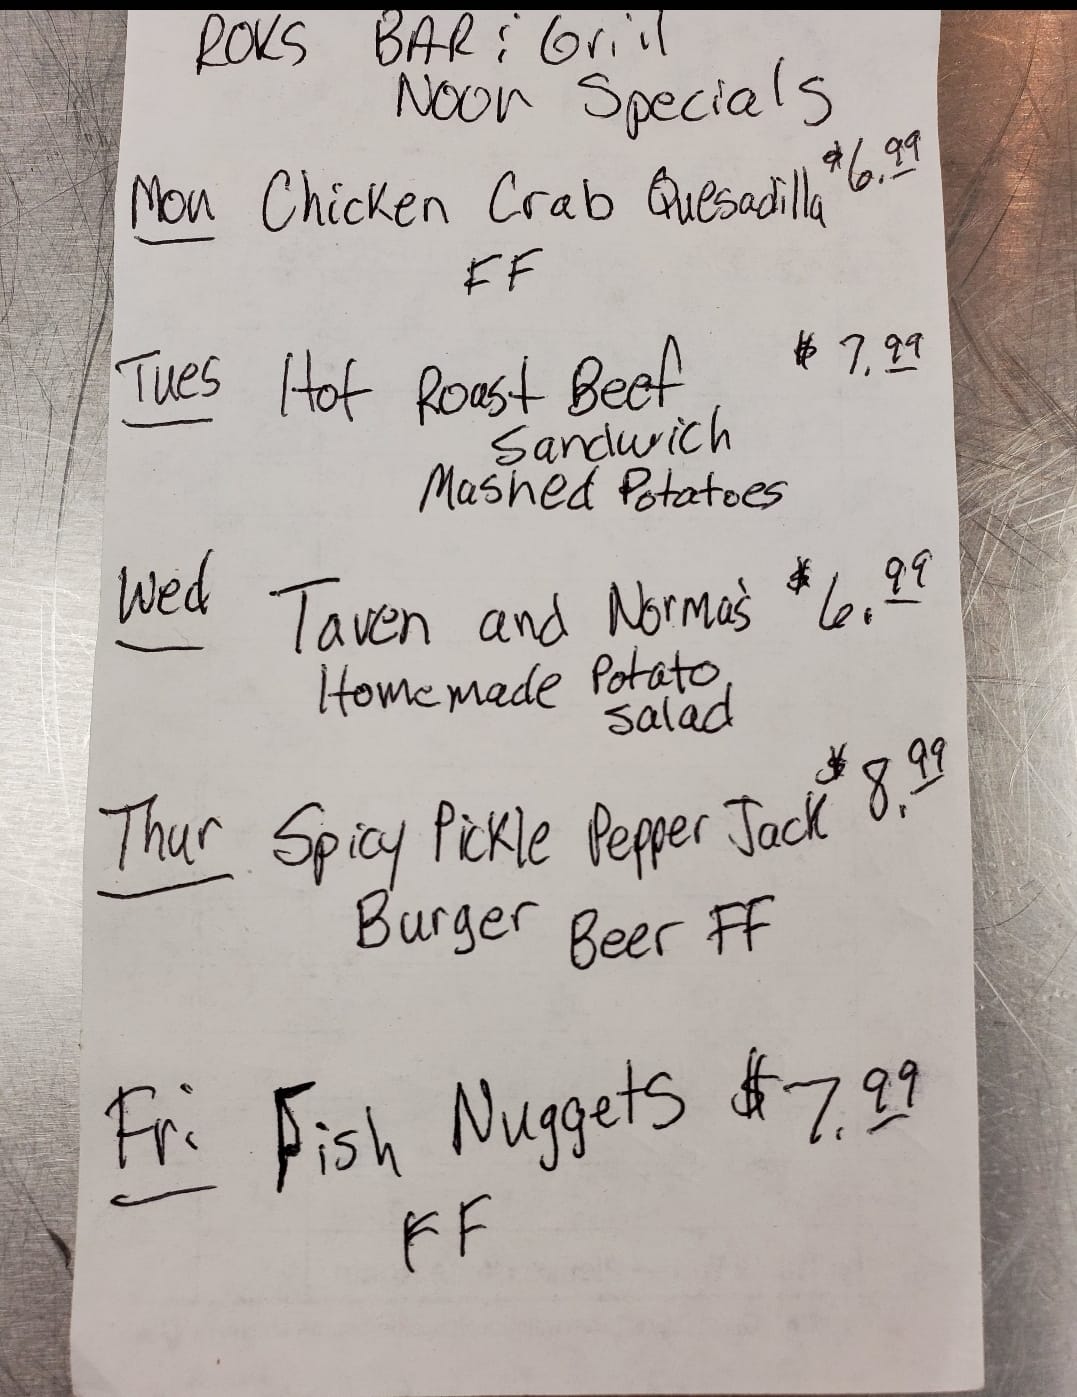 ROKS BAR & Grill
Noon Specials
Mon Chicken Crab Quesadilla $6.99
FF
Tues Hot Roast Beef $7.99
Sandwich
Mashed Potatoes
Wed Taven and Norma's $6.99
Homemade Potato
Salad
Thur Spicy Pickle Pepper Jack $8.99
Burger Beer FF
Fri Fish Nuggets $7.99
FF